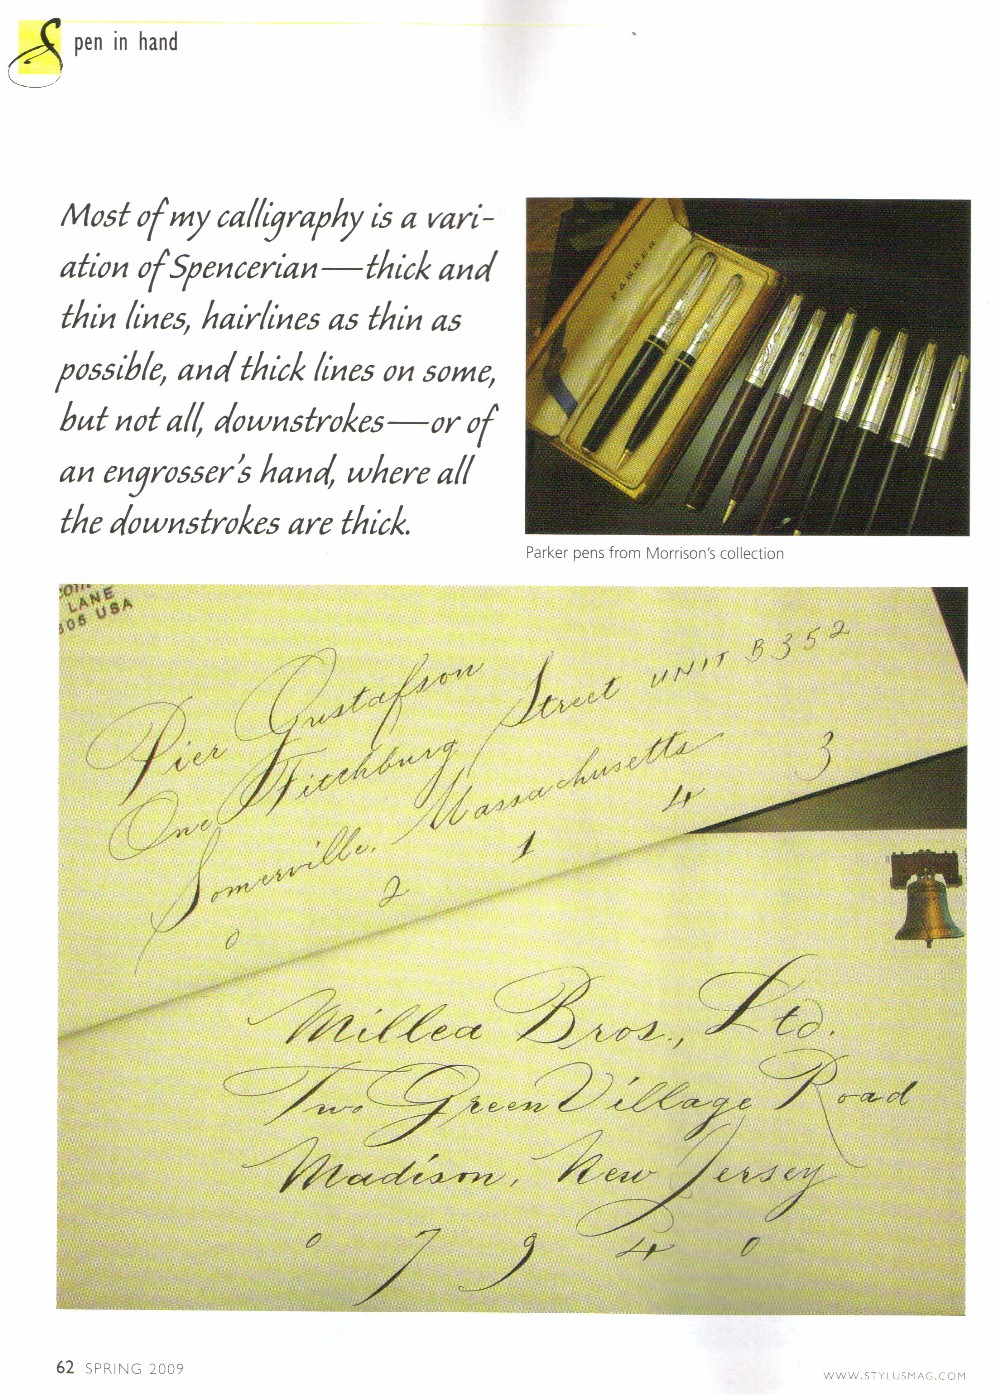 pen in hand
Most of my calligraphy is a vari-
ation of Spencerian—thick and
thin lines, hairlines as thin as
possible, and thick lines on some,
but not all, downstrokes—or of
an engrosser's hand, where all
the downstrokes are thick.
PARKER
Parker pens from Morrison's collection
LANE
305 USA
Pier Gustafson
One Fitchburg Street UNIT B352
Somerville, Massachusetts
0 2 1 4 3
Millea Bros., Ltd.
Two Green Village Road
Madison, New Jersey
0 7 9 4 0
62 SPRING 2009
WWW.STYLUSMAG.COM